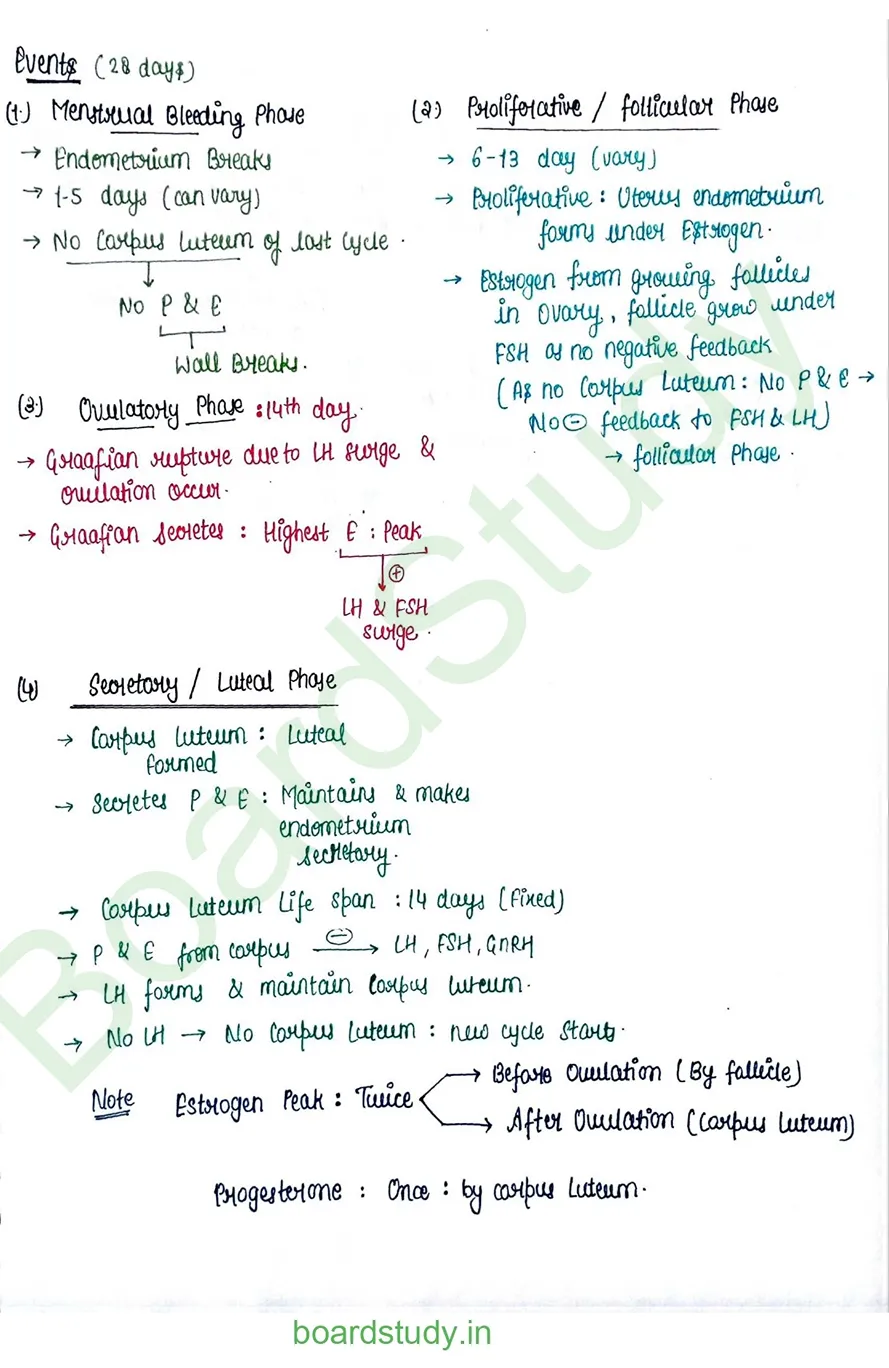 Events (28 days)
(1.) Menstrual Bleeding Phase
→ Endometrium Breaks
→ 1-5 days (can vary)
→ No Corpus Luteum of last cycle.
No P & E
Wall Breaks.
(2.) Proliferative / follicular Phase
→ 6-13 day (vary)
→ Proliferative : Uterus endometrium
forms under Estrogen.
→ Estrogen from growing follicles
in Ovary, follicle grow under
FSH as no negative feedback
(As no Corpus Luteum : No P & E →
No ⊖ feedback to FSH & LH)
→ follicular Phase.
(3.) Ovulatory Phase : 14th day.
→ Graafian rupture due to LH surge &
ovulation occur.
→ Graafian secretes : Highest E : Peak
⊕
LH & FSH
surge.
(4) Secretory / Luteal Phase
→ Corpus Luteum : Luteal
formed
→ Secretes P & E : Maintains & makes
endometrium
secretary.
→ Corpus Luteum Life span : 14 days (Fixed)
→ P & E from corpus ⊖→ LH, FSH, GnRH
→ LH forms & maintain Corpus Luteum.
→ No LH → No Corpus Luteum : new cycle starts.
Note Estrogen Peak : Twice
→ Before Ovulation (By follicle)
→ After Ovulation (Corpus Luteum)
Progesterone : Once : by corpus Luteum.
BoardStudy
boardstudy.in